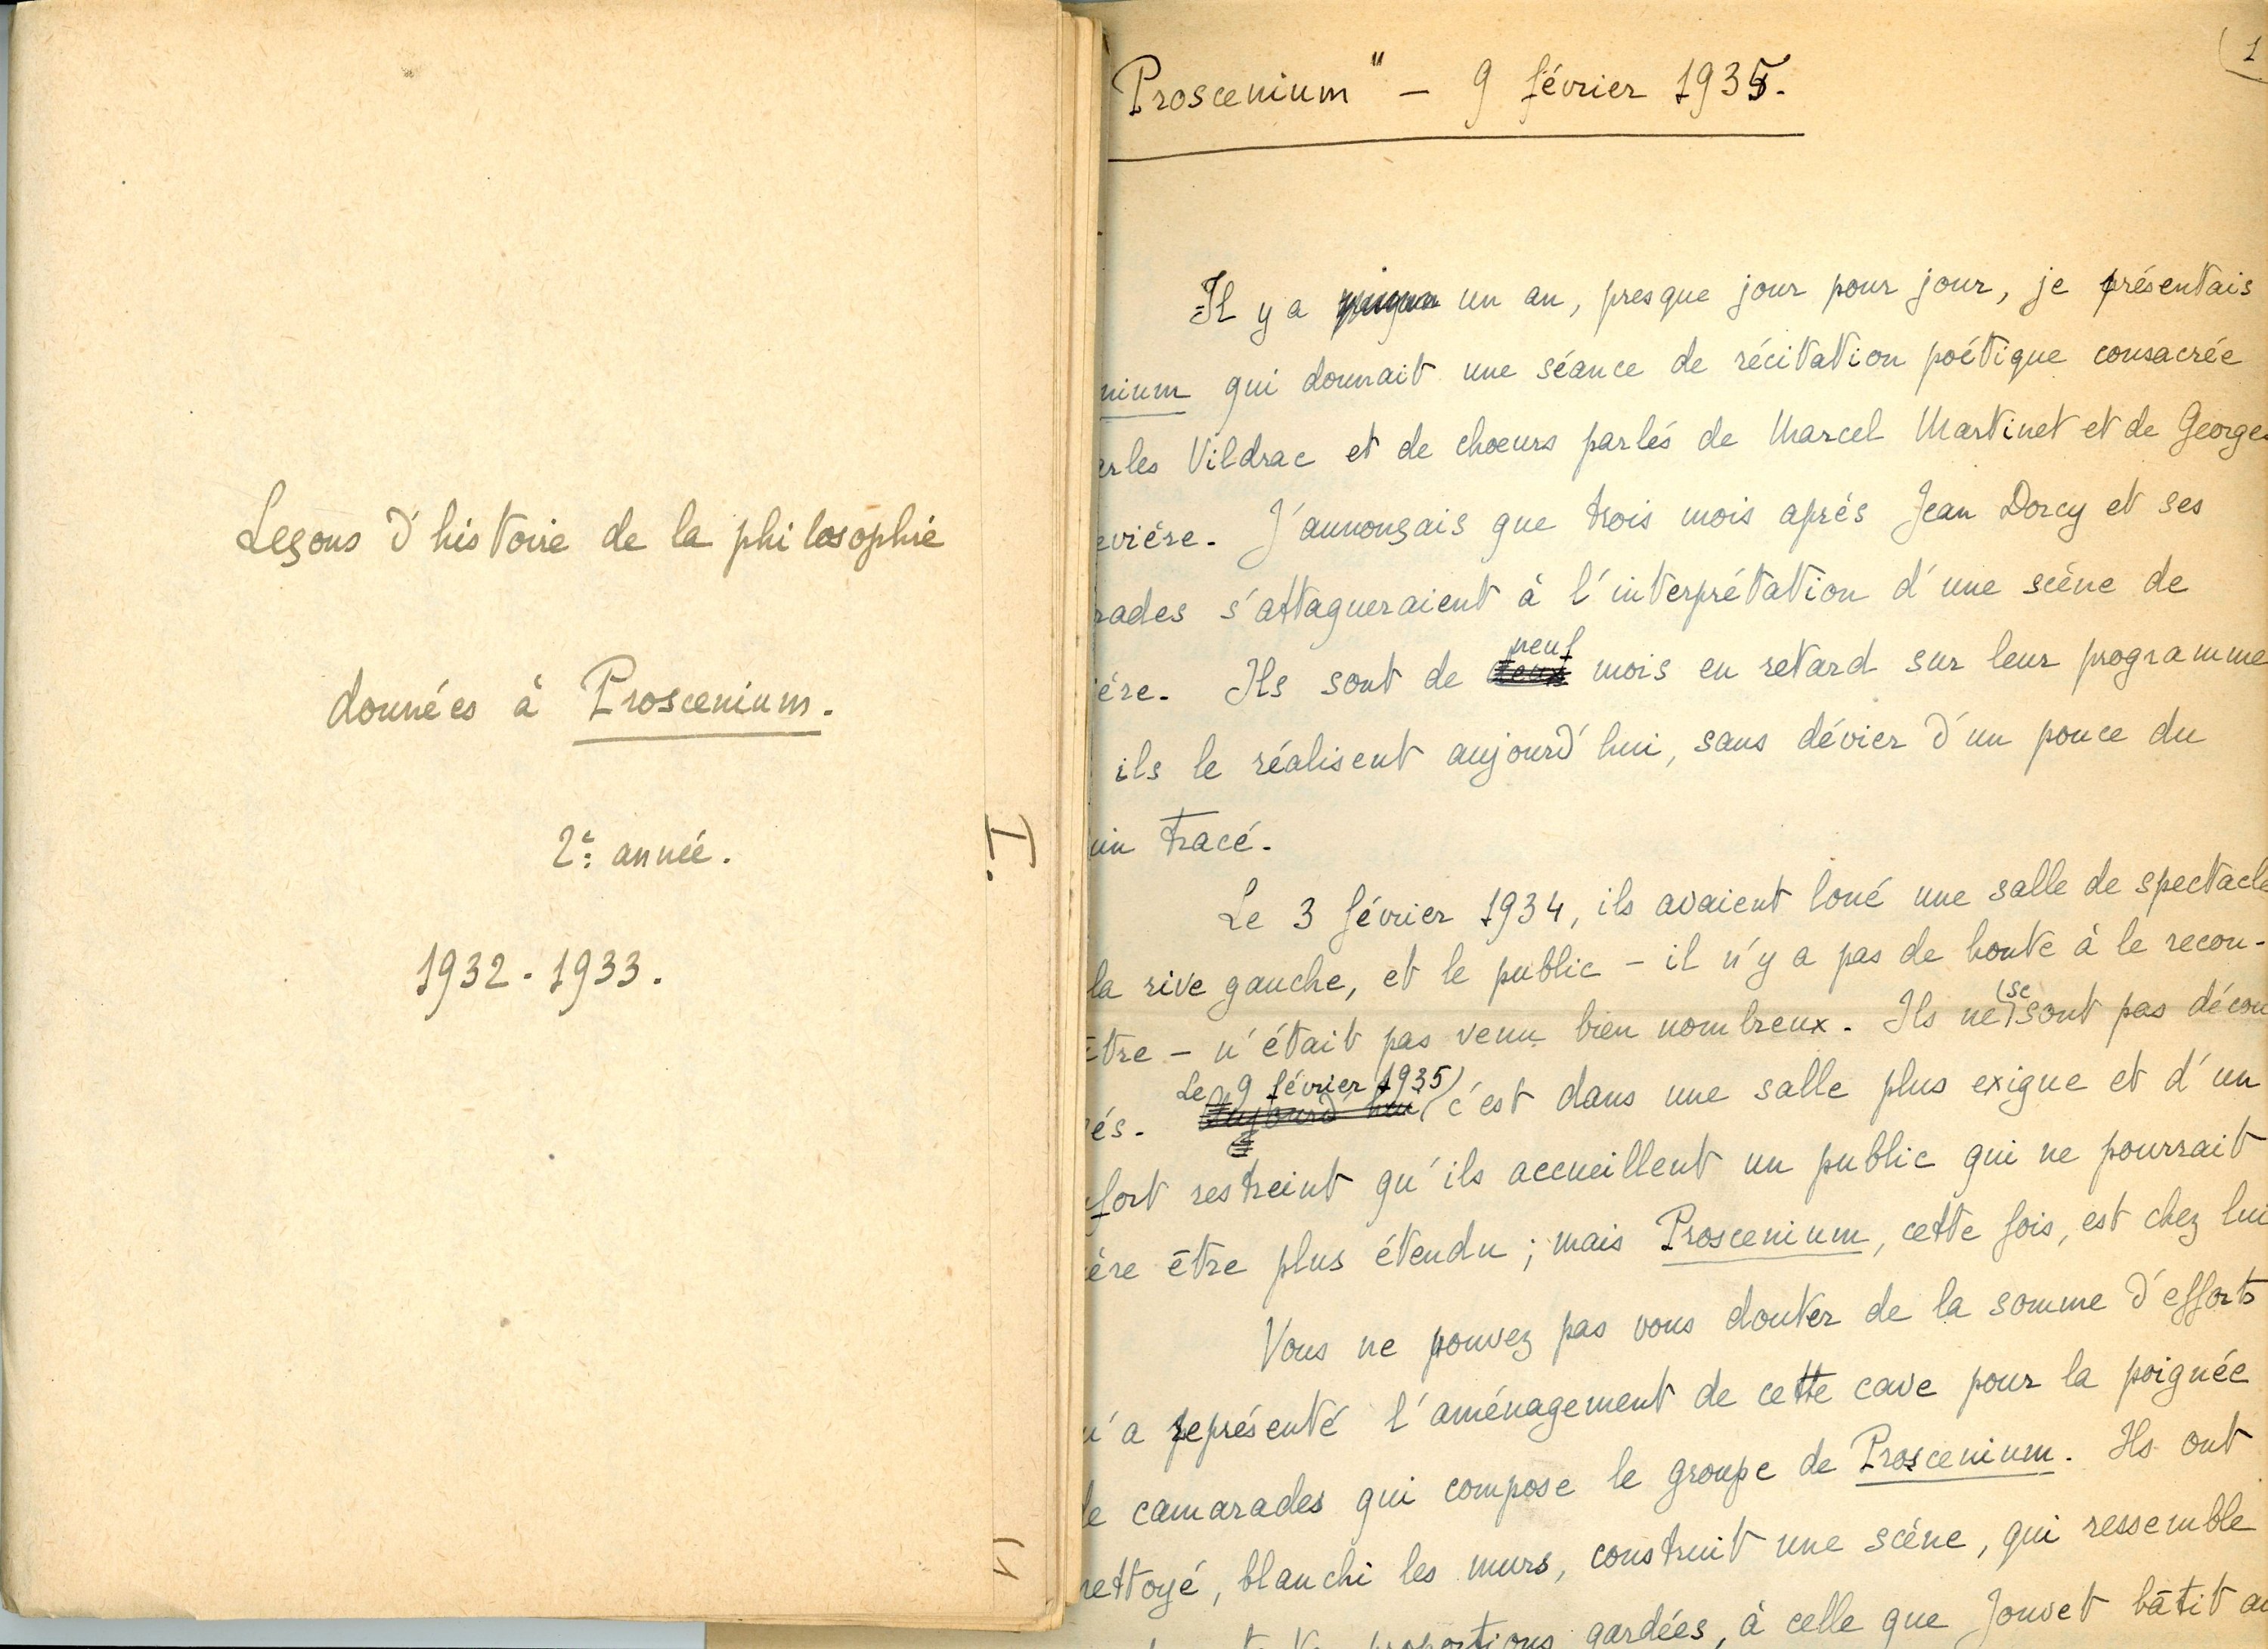 Leçons d'histoire de la philosophie
données à Proscenium.
2e année.
1932-1933.
I.
(1
Proscenium" - 9 février 1935.
Il y a un an, presque jour pour jour, je présentais
nium qui donnait une séance de récitation poétique consacrée
arles Vildrac et de choeurs parlés de Marcel Martinet et de Georges
evière. J'annonçais que trois mois après Jean Dorcy et ses
rades s'attaqueraient à l'interprétation d'une scène de
ière. Ils sont de deux neuf mois en retard sur leur programme
ils le réalisent aujourd'hui, sans dévier d'un pouce du
min tracé.
Le 3 février 1934, ils avaient loué une salle de spectacle
la rive gauche, et le public - il n'y a pas de honte à le recon-
être - n'était pas venu bien nombreux. Ils ne se sont pas décou
és. Aujourd'hui Le 9 février 1935 c'est dans une salle plus exigue et d'un
fort restreint qu'ils accueillent un public qui ne pourrait
ère être plus étendu ; mais Proscenium, cette fois, est chez lui
Vous ne pouvez pas vous douter de la somme d'efforts
u'a représenté l'aménagement de cette cave pour la poignée
de camarades qui compose le groupe de Proscenium. Ils ont
nettoyé, blanchi les murs, construit une scène, qui ressemble
proportions gardées, à celle que Jouvet bâtit au
1